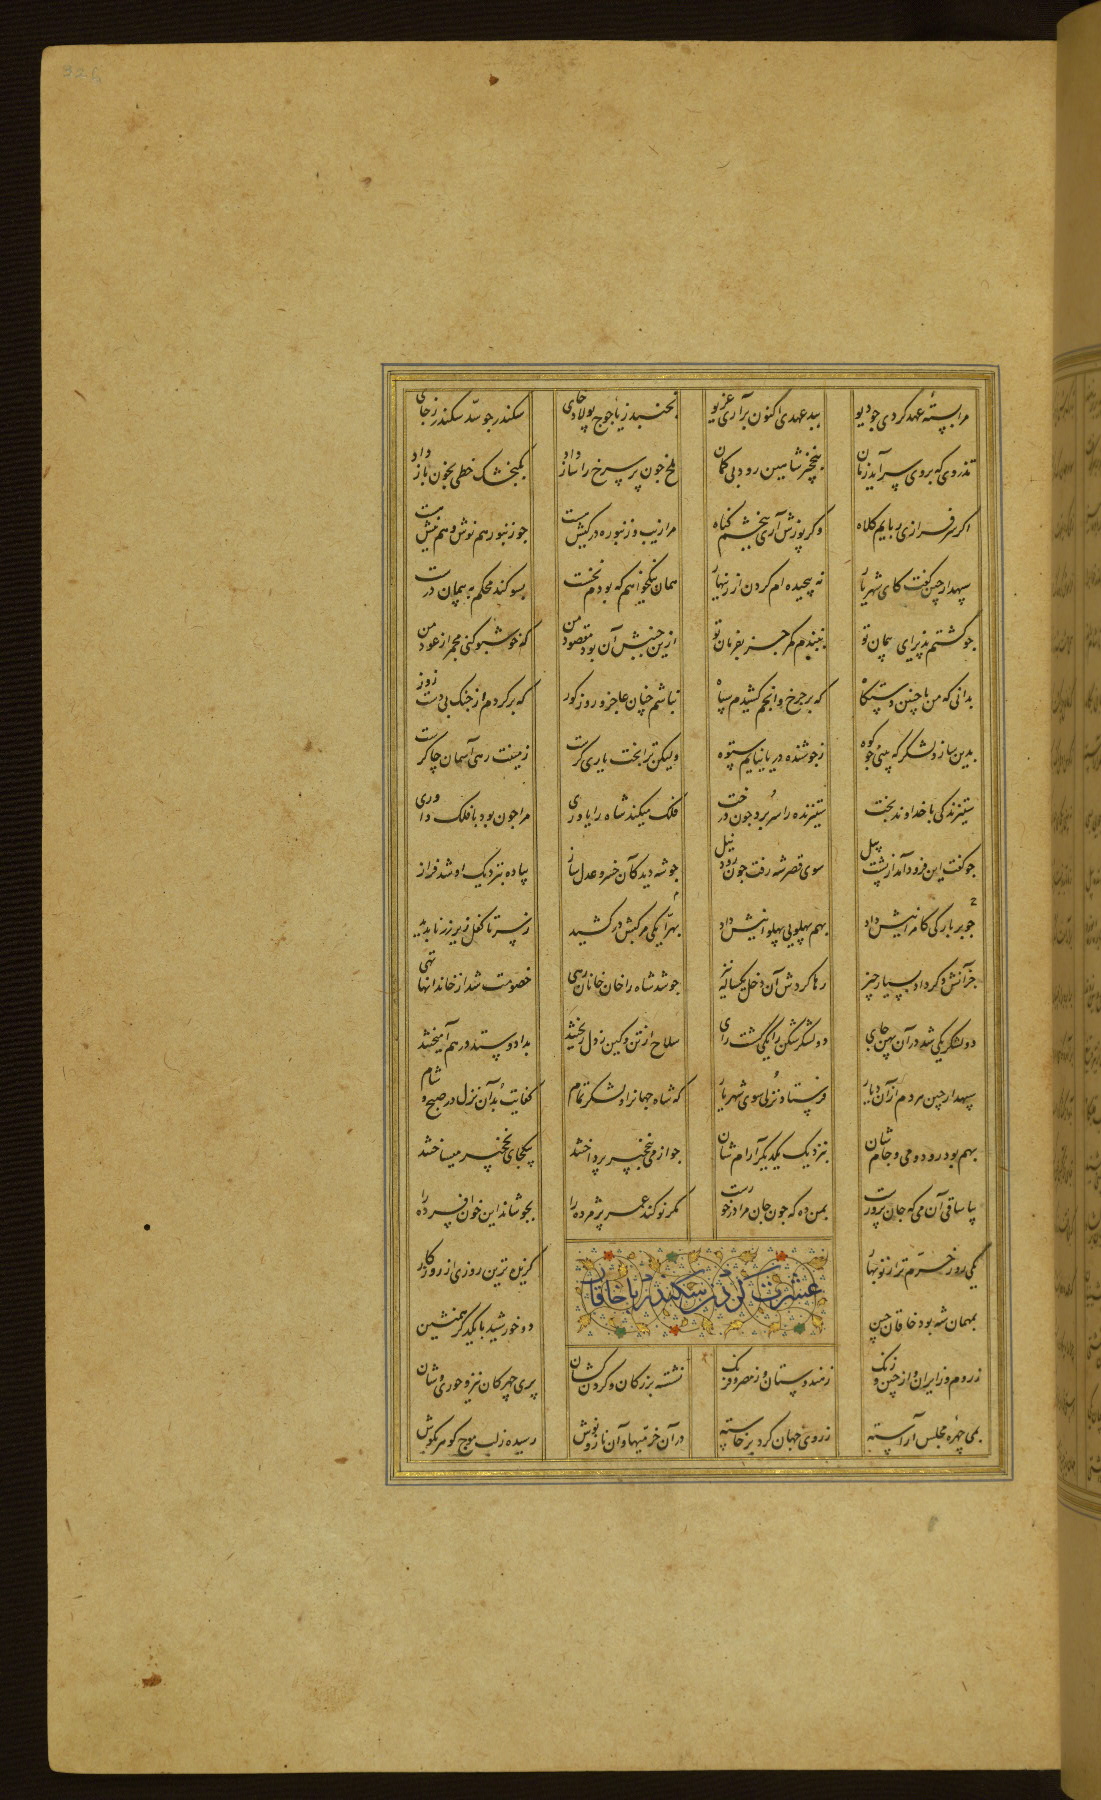 مرا بستهٔ عهد کردی چو دیو
ببد عهدی اکنون برآری غریو
نجنبد ز یاجوج پولاد جای
سکندر چو سد سکندر ز جای
تذروی که بروی سرآید زمان
بنخچیر شاهین رود بی گمان
ملخ چون پر سرخ را ساز داد
بگنجشک خطی بخون باز داد
اگر سرفرازی ربایم کلاه
وگر پوزش آری ببخشم گناه
مرا زیب و زنبوره در کیش هست
چو زنبور هم نوش و هم نیش هست
سپهدار چین گفت کای شهریار
نپیچیده ام گردن از زنهار
همان نیکخواهم که بودم نخست
بسوگند محکم به پیمان درست
چو گشتم پذیرای پیمان تو
نبندم کمر جز بفرمان تو
ازین جنبش آن بود مقصود من
که خوشبو کنی مجمر از عود من
بدانی که من با چنین دستگاه
که بر چرخ و انجم کشیدم سپاه
نباشم چنان عاجز و روز کور
که برگردم از جنگ بی دست زور
بدین ساز و لشکر که بینی چو کوه
ز جوشنده دریا نیایم ستوه
ولیکن ترا بخت یاری گرست
زمینت رهی آسمان چاکرست
ستیزندگی با خداوند بخت
ستیزنده را سر برد چون درخت
فلک میکند شاه را یاوری
مرا چون بود با فلک داوری
چو گفت این فرود آمد از پشت پیل
سوی قصر شه رفت چون رود نیل
چو شه دید کآن خسرو عدل ساز
پیاده بنزدیک او شد فراز
چو بر بارگی کامرانیش داد
بهم پهلویی پهلوانیش داد
بهرا یکی مرکبش درکشید
ز سر تا کفل زیر زر ناپدید
جز آنش دگر داد بسیار چیز
رها کردش آن دخل یکساله نیز
چو شد شاه را خان خانان رهی
خصومت شد از خاندانها تهی
دو لشکر یکی شد در آن پهن جای
دو لشکرشکن را یکی گشت رای
سلاح از تن و کین ز دل ریختند
بداد و ستد در هم آمیختند
سپهدار چین هر دم از آن دیار
فرستاد نزلی سوی شهریار
که شاه جهانرا و لشکر تمام
کفایت بد آن نزل در صبح و شام
بهم بود رود و می و جام شان
بنزدیک یکدیگر آرام شان
چو از می بنخچیر پرداختند
بیکجای نخچیر میساختند
بیا ساقی آن می که جان پرورست
بمن ده که چون جان مرا درخورست
مگر نو کند عمر پژمرده را
بجوش آرد این خون افسرده را
یکی روز خرم تر از نوبهار
عشرت کردن سکندر با خاقان
گزین ترین روزی از روزگار
بمهمان شه بود خاقان چین
دو خورشید با یکدگر همنشین
ز روم و ز ایران و از چین و زنگ
ز هندوستان و ز مصر و فرنگ
نشسته بزرگان و گردن کشان
پری چهرگان نیز و حوری وشان
بمی چهره مجلس آراسته
ز روی جهان گرد برخاسته
در آن خرمیها و آن ناز و نوش
رسیده ز لب موج گوهر بگوش